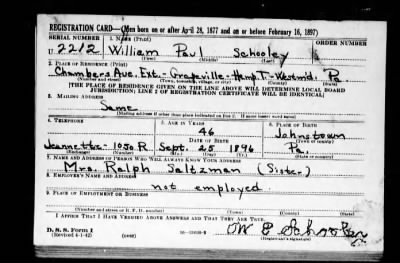 REGISTRATION CARD—(Men born on or after April 28, 1877 and on or before February 16, 1897)
SERIAL NUMBER 1. NAME (Print)
U 2212 William Paul Schooley
(First) (Middle) (Last)
2. PLACE OF RESIDENCE (Print)
Chambers Ave. Ext.- Grapeville- Hemp. T.- Westmd. Pa.
(Number and street) (Town, township, village, or city) (County) (State)
[THE PLACE OF RESIDENCE GIVEN ON THE LINE ABOVE WILL DETERMINE LOCAL BOARD
JURISDICTION; LINE 2 OF REGISTRATION CERTIFICATE WILL BE IDENTICAL]
3. MAILING ADDRESS
Same
(Mailing address if other than place indicated on line 2. If same insert word same)
4. TELEPHONE 5. AGE IN YEARS 6. PLACE OF BIRTH
46 Johnstown
DATE OF BIRTH (Town or county)
Jeannette- 1050 R Sept. 25 1896 Pa.
(Exchange) (Number) (Mo.) (Day) (Yr.) (State or country)
7. NAME AND ADDRESS OF PERSON WHO WILL ALWAYS KNOW YOUR ADDRESS
Mrs. Ralph Saltzman (Sister)
8. EMPLOYER'S NAME AND ADDRESS
not employed
9. PLACE OF EMPLOYMENT OR BUSINESS
(Number and street or R. F. D. number) (Town) (County) (State)
I AFFIRM THAT I HAVE VERIFIED ABOVE ANSWERS AND THAT THEY ARE TRUE.
D. S. S. Form 1
(Revised 4-1-42) (over)
(Registrant's signature)